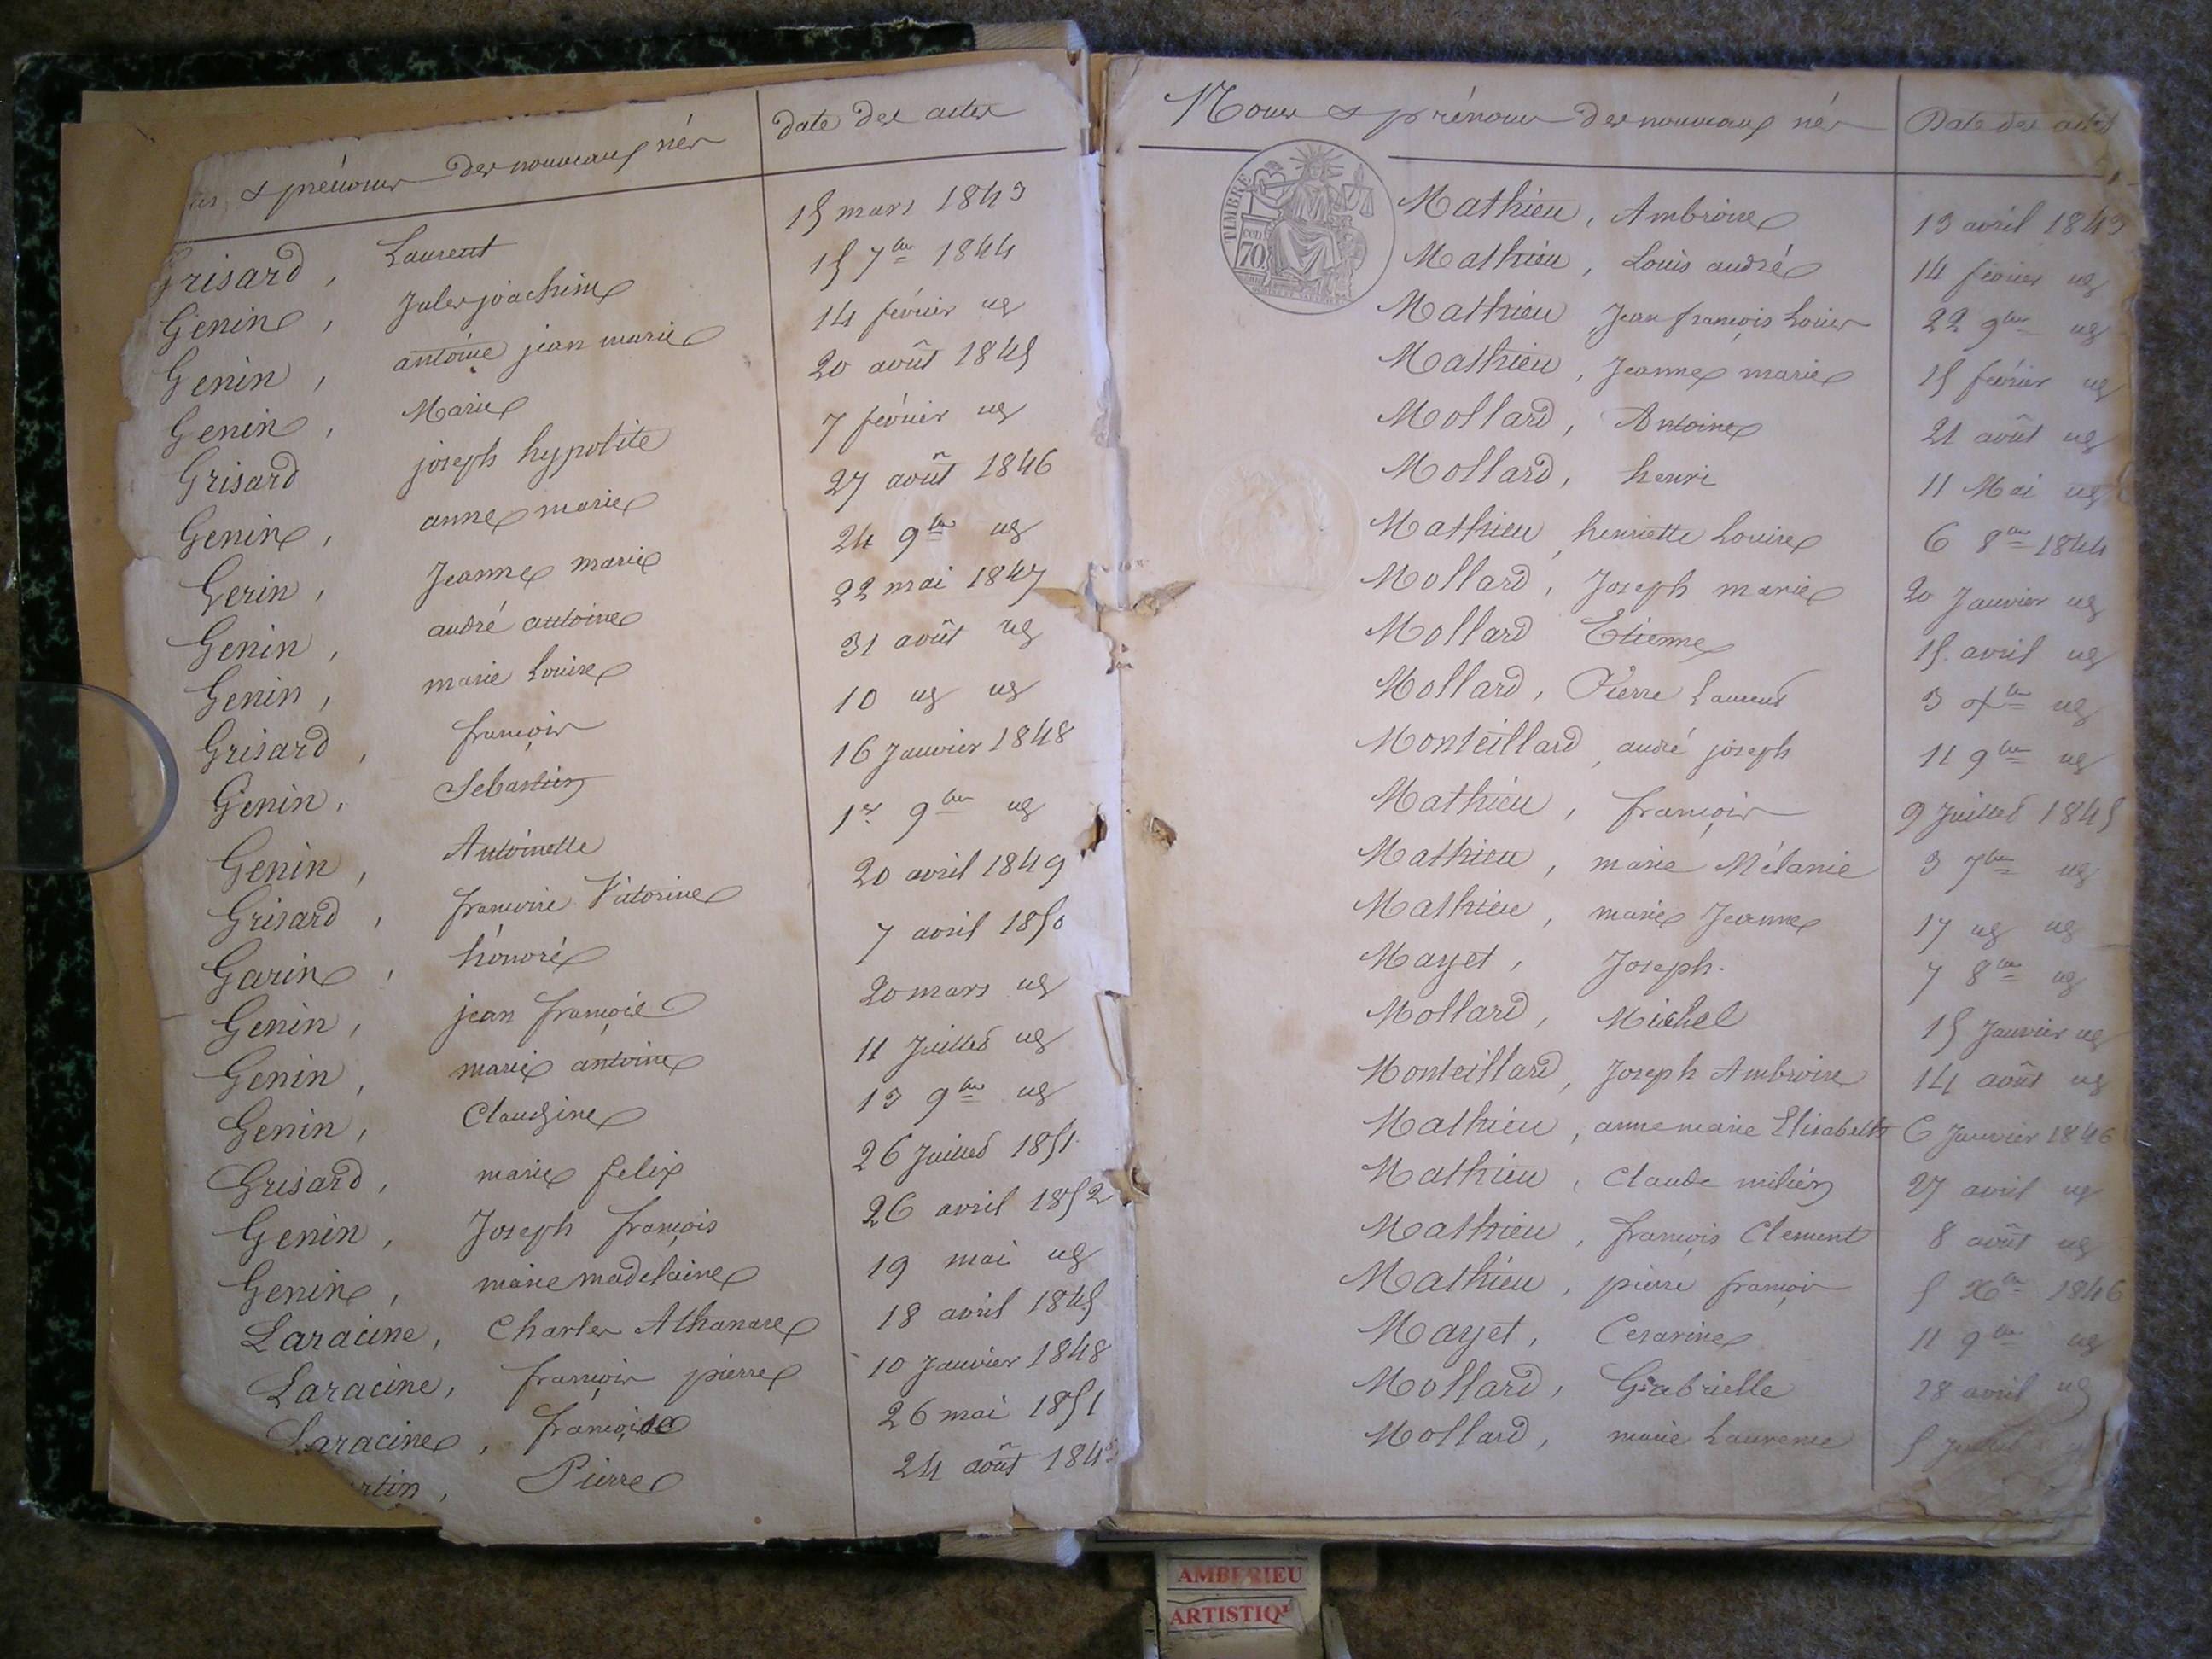 & prénoms des nouveaux nés date des actes
Grisard, Laurent 15 mars 1843
Genin, Jules joachim 15 7bre 1844
Genin, antoine jean marie 14 févier ug
Genin, Marie 20 août 1845
Grisard joseph hypolite 7 févier ug
Genin, anne marie 27 août 1846
Gerin, Jeanne marie 24 9bre ug
Genin, andré antoine 22 mai 1847
Genin, marie Louise 31 août ug
Grisard, françois 10 ug ug
Genin, Sebastien 16 Janvier 1848
Genin, Antoinette 1er 9bre ug
Grisard, francoise Victorine 20 avril 1849
Garin, hónoré 7 avril 1850
Genin, jean françois 20 mars ug
Genin, marie antoine 11 Juillet ug
Genin, Claudine 13 9bre ug
Grisard, marie felix 26 Juillet 1851
Genin, Joseph françois 26 avril 1852
Genin, marie madelaine 19 mai ug
Laracine, Charles Athanase 18 avril 1845
Laracine, françois pierre 10 Janvier 1848
Laracine, françoise 26 mai 1851
Pierre 24 août
Noms & prénoms des nouveaux nés Date des actes
TIMBRE
70
Mathieu, Ambroise 13 avril 1843
Mathieu, Louis andré 14 févier ug
Mathieu, Jean françois Louis 22 9bre ug
Mathieu, Jeanne marie 15 févier ug
Mollard, Antoine 21 août ug
Mollard, henri 11 Mai ug
Mathieu, henriette Louise 6 8bre 1844
Mollard, Joseph marie 20 Janvier ug
Mollard Etienne 15 avril ug
Mollard, Pierre Laurent 3 ug
Monteillard, andré joseph 11 9bre ug
Mathieu, françois 9 Juillet 1845
Mathieu, marie Mélanie 3 7bre ug
Mathieu, marie Jeanne 17 ug ug
Mayet, Joseph. 7 8bre ug
Mollard, Michel 15 Janvier ug
Monteillard, Joseph Ambroise 14 août ug
Mathieu, anne marie Elisabeth 6 Janvier 1846
Mathieu, Claude milien 27 avril ug
Mathieu, françois Clement 8 août ug
Mathieu, pierre françois 5 Xbre 1846
Mayet, Cesarine 11 9bre ug
Mollard, Gabrielle 28 avril ug
Mollard, marie Laurence 5
AMBERIEU
ARTISTIQ